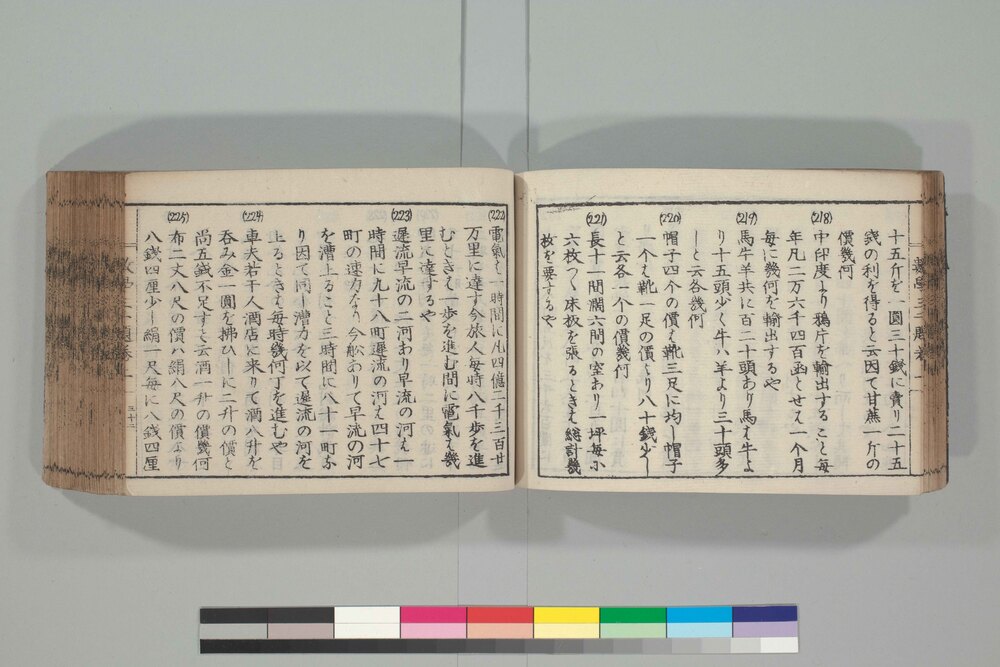 十五斤を一圓三十錢に賣り二十五
錢の利を得ると云因て甘蔗一斤の
價幾何
(218)
中印度より鴉片を輸出すること毎
年凡二万六千四百函とせは一个月
毎に幾何を輸出するや
(219)
馬牛羊共に百二十頭あり馬は牛よ
り十五頭少く牛ハ羊より三十頭多
しと云各幾何
(220)
帽子四个の價は靴三足に均し帽子
一个は靴一足の價より八十錢少し
と云各一个の價幾何
(221)
長十一間濶六間の室あり一坪毎に
六枚つく床板を張るときは總計幾
枚を要するや
(222)
電氣は一時間に凡四億二千三百廿
万里に達す今旅人毎時八千歩を進
むときは一歩を進む間に電氣は幾
里に達するや
(223)
遲流早流の二河あり早流の河は一
時間に九十八町遲流の河は四十七
町の速力なり今舩ありて早流の河
を漕上ること三時間に八十一町な
り因て同し漕力を以て遲流の河を
上るときは毎時幾何丁を進むや
(224)
車夫若干人酒店に来りて酒八升を
呑み金一圓を拂ひしに二升の價と
尚五錢不足すと云酒一升の價幾何
(225)
布二丈八尺の價ハ絹八尺の價より
八錢四厘少し絹一尺毎に八錢四厘